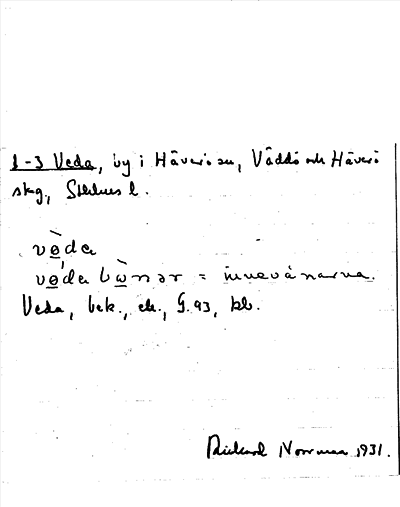 1-3 Veda, by i Häverö sn, Väddö och Häverö
skg, Sthlms l.
vèda
véda bònər = innevånarna.
Veda, bek., ek., G. 93, kb.
Rickard Norrman 1931.